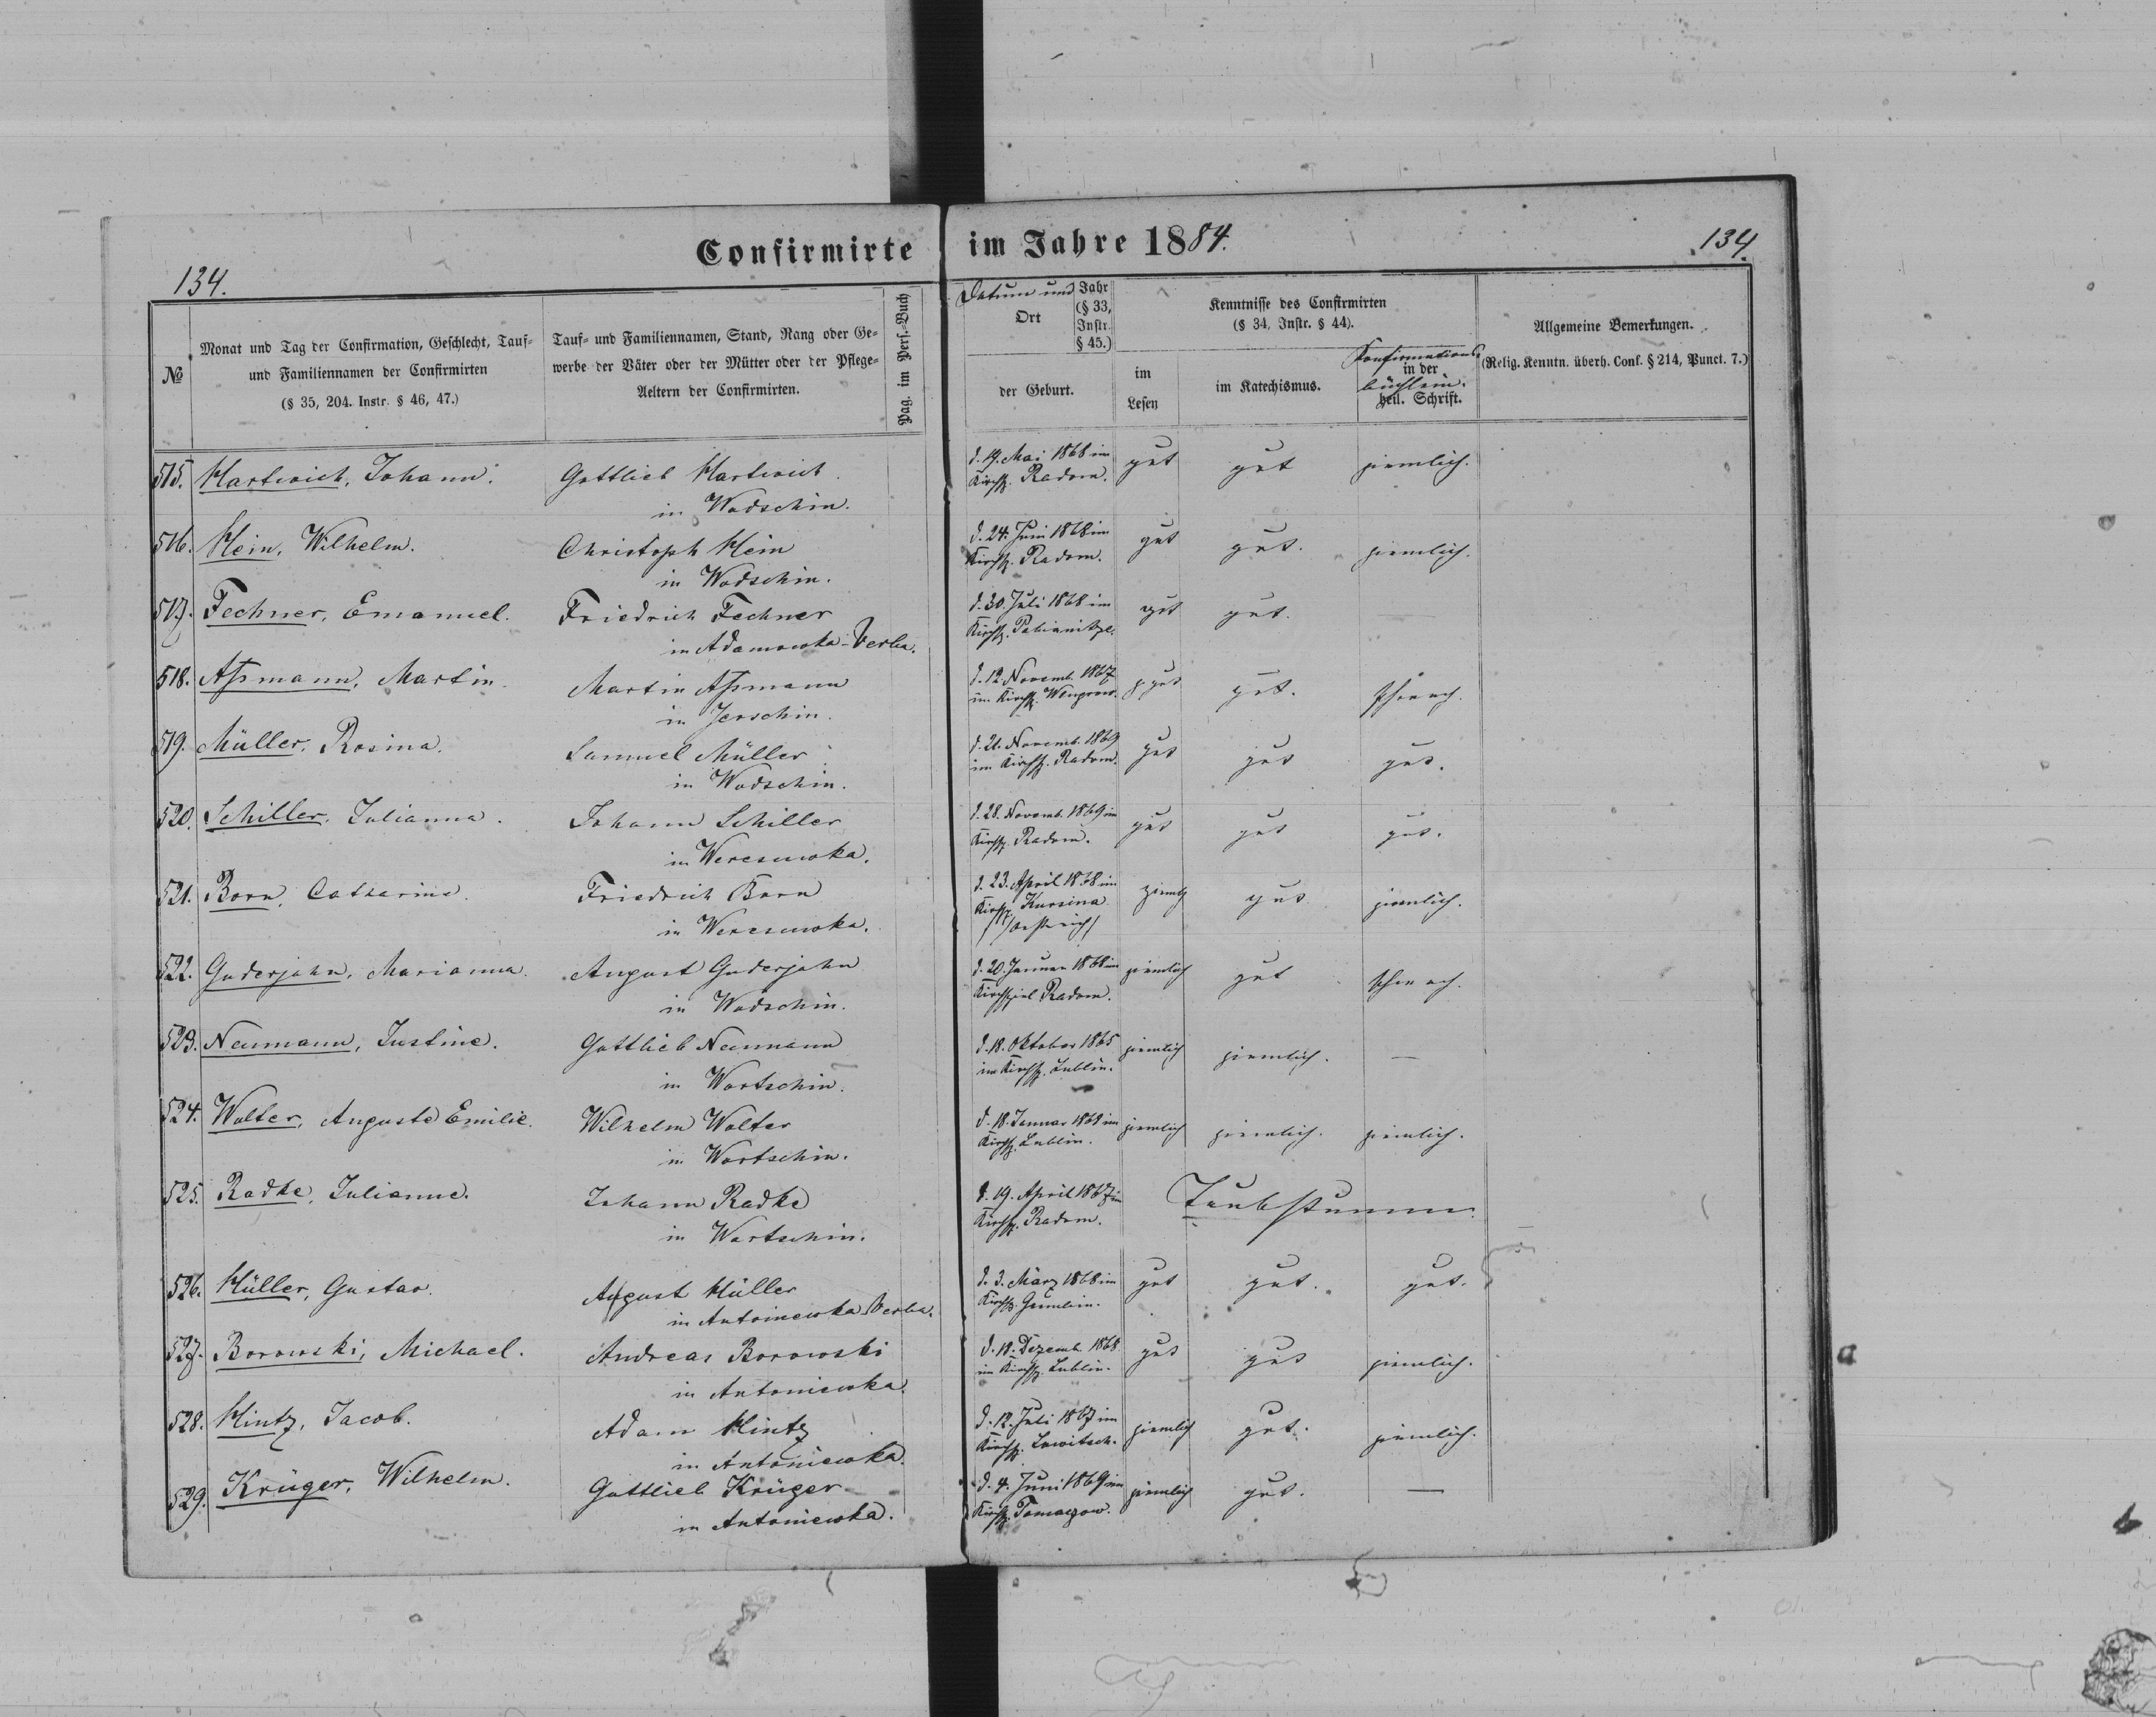 Confirmirte im Jahre 1884.
134.
134.
№
Monat und Tag der Confirmation, Geschlecht, Tauf-
und Familiennamen der Confirmirten
(§ 35, 204. Instr. § 46, 47.)
Tauf- und Familiennamen, Stand, Rang oder Ge-
werbe der Väter oder der Mütter oder der Pflege-
Aeltern der Confirmirten.
Pag. im Pers.-Buch
Datum und
Ort
Jahr
(§ 33,
Instr.
§ 45.)
der Geburt.
Kenntnisse des Confirmirten
(§ 34, Instr. § 44).
im
Lesen
im Katechismus.
Konfirmations-
in der
büchlein.
heil. Schrift.
Allgemeine Bemerkungen.
(Relig. Kenntn. überh. Conf. § 214, Punct. 7.)
515. Hartwich, Johann. Gottlieb Hartwich d. 19. Mai 1868 im gut gut ziemlich.
in Wodschin. Kirchsp. Radom.
516. Hein, Wilhelm. Christoph Hein d. 24. Juni 1868 im gut gut. ziemlich.
in Wodschin. Kirchsp. Radom.
517. Fechner, Emanuel. Friedrich Fechner d. 30. Juli 1868 im gut gut.
in Adamowka-Verba. Kirchsp. Pabianitze.
518. Aßmann, Martin. Martin Aßmann d. 12. Novemb. 1867 z. gut gut. schwach.
in Jerschin. im Kirchsp. Wengrow.
519. Müller, Rosina. Samuel Müller d. 21. Novemb. 1869 gut gut gut.
in Wodschin. im Kirchsp. Radom.
520. Schiller, Julianna. Johann Schiller d. 28. Novemb. 1869 im gut gut gut.
in Weresuwka. Kirchsp. Radom.
521. Born, Catharina. Friedrich Born d. 23. April 1868 im ziemlich gut ziemlich.
in Weresuwka. Kirchsp. Kursina
/Oestreich/
522. Guderjahn, Marianna. August Guderjahn d. 20. Januar 1868 im ziemlich gut schwach.
in Wodschin. Kirchspiel Radom.
523. Neumann, Justine. Gottlieb Neumann d. 18. Oktober 1865 ziemlich ziemlich. —
in Wortschin. im Kirchsp. Lublin.
524. Wolter, Auguste Emilie. Wilhelm Wolter d. 18. Januar 1868 im ziemlich ziemlich. ziemlich.
in Wortschin. Kirchsp. Lublin.
525. Radke, Julianne. Johann Radke d. 19. April 1867 im Taubstumm.
in Wortschin. Kirchsp. Radom.
526. Hüller, Gustav. August Hüller d. 3. März 1868 im gut gut. gut.
in Antoniewka Verba. Kirchsp. Gumbin.
527. Borowski, Michael. Andreas Borowski d. 18. Dezemb. 1868 gut gut ziemlich.
in Antoniewka. im Kirchsp. Lublin.
528. Hintz, Jacob. Adam Hintz d. 12. Juli 1867 im ziemlich gut. ziemlich.
in Antoniewka. Kirchsp. Lowitsch.
529. Krüger, Wilhelm. Gottlieb Krüger d. 4. Juni 1869 im ziemlich gut. —
in Antoniewka. Kirchsp. Tomaszow.